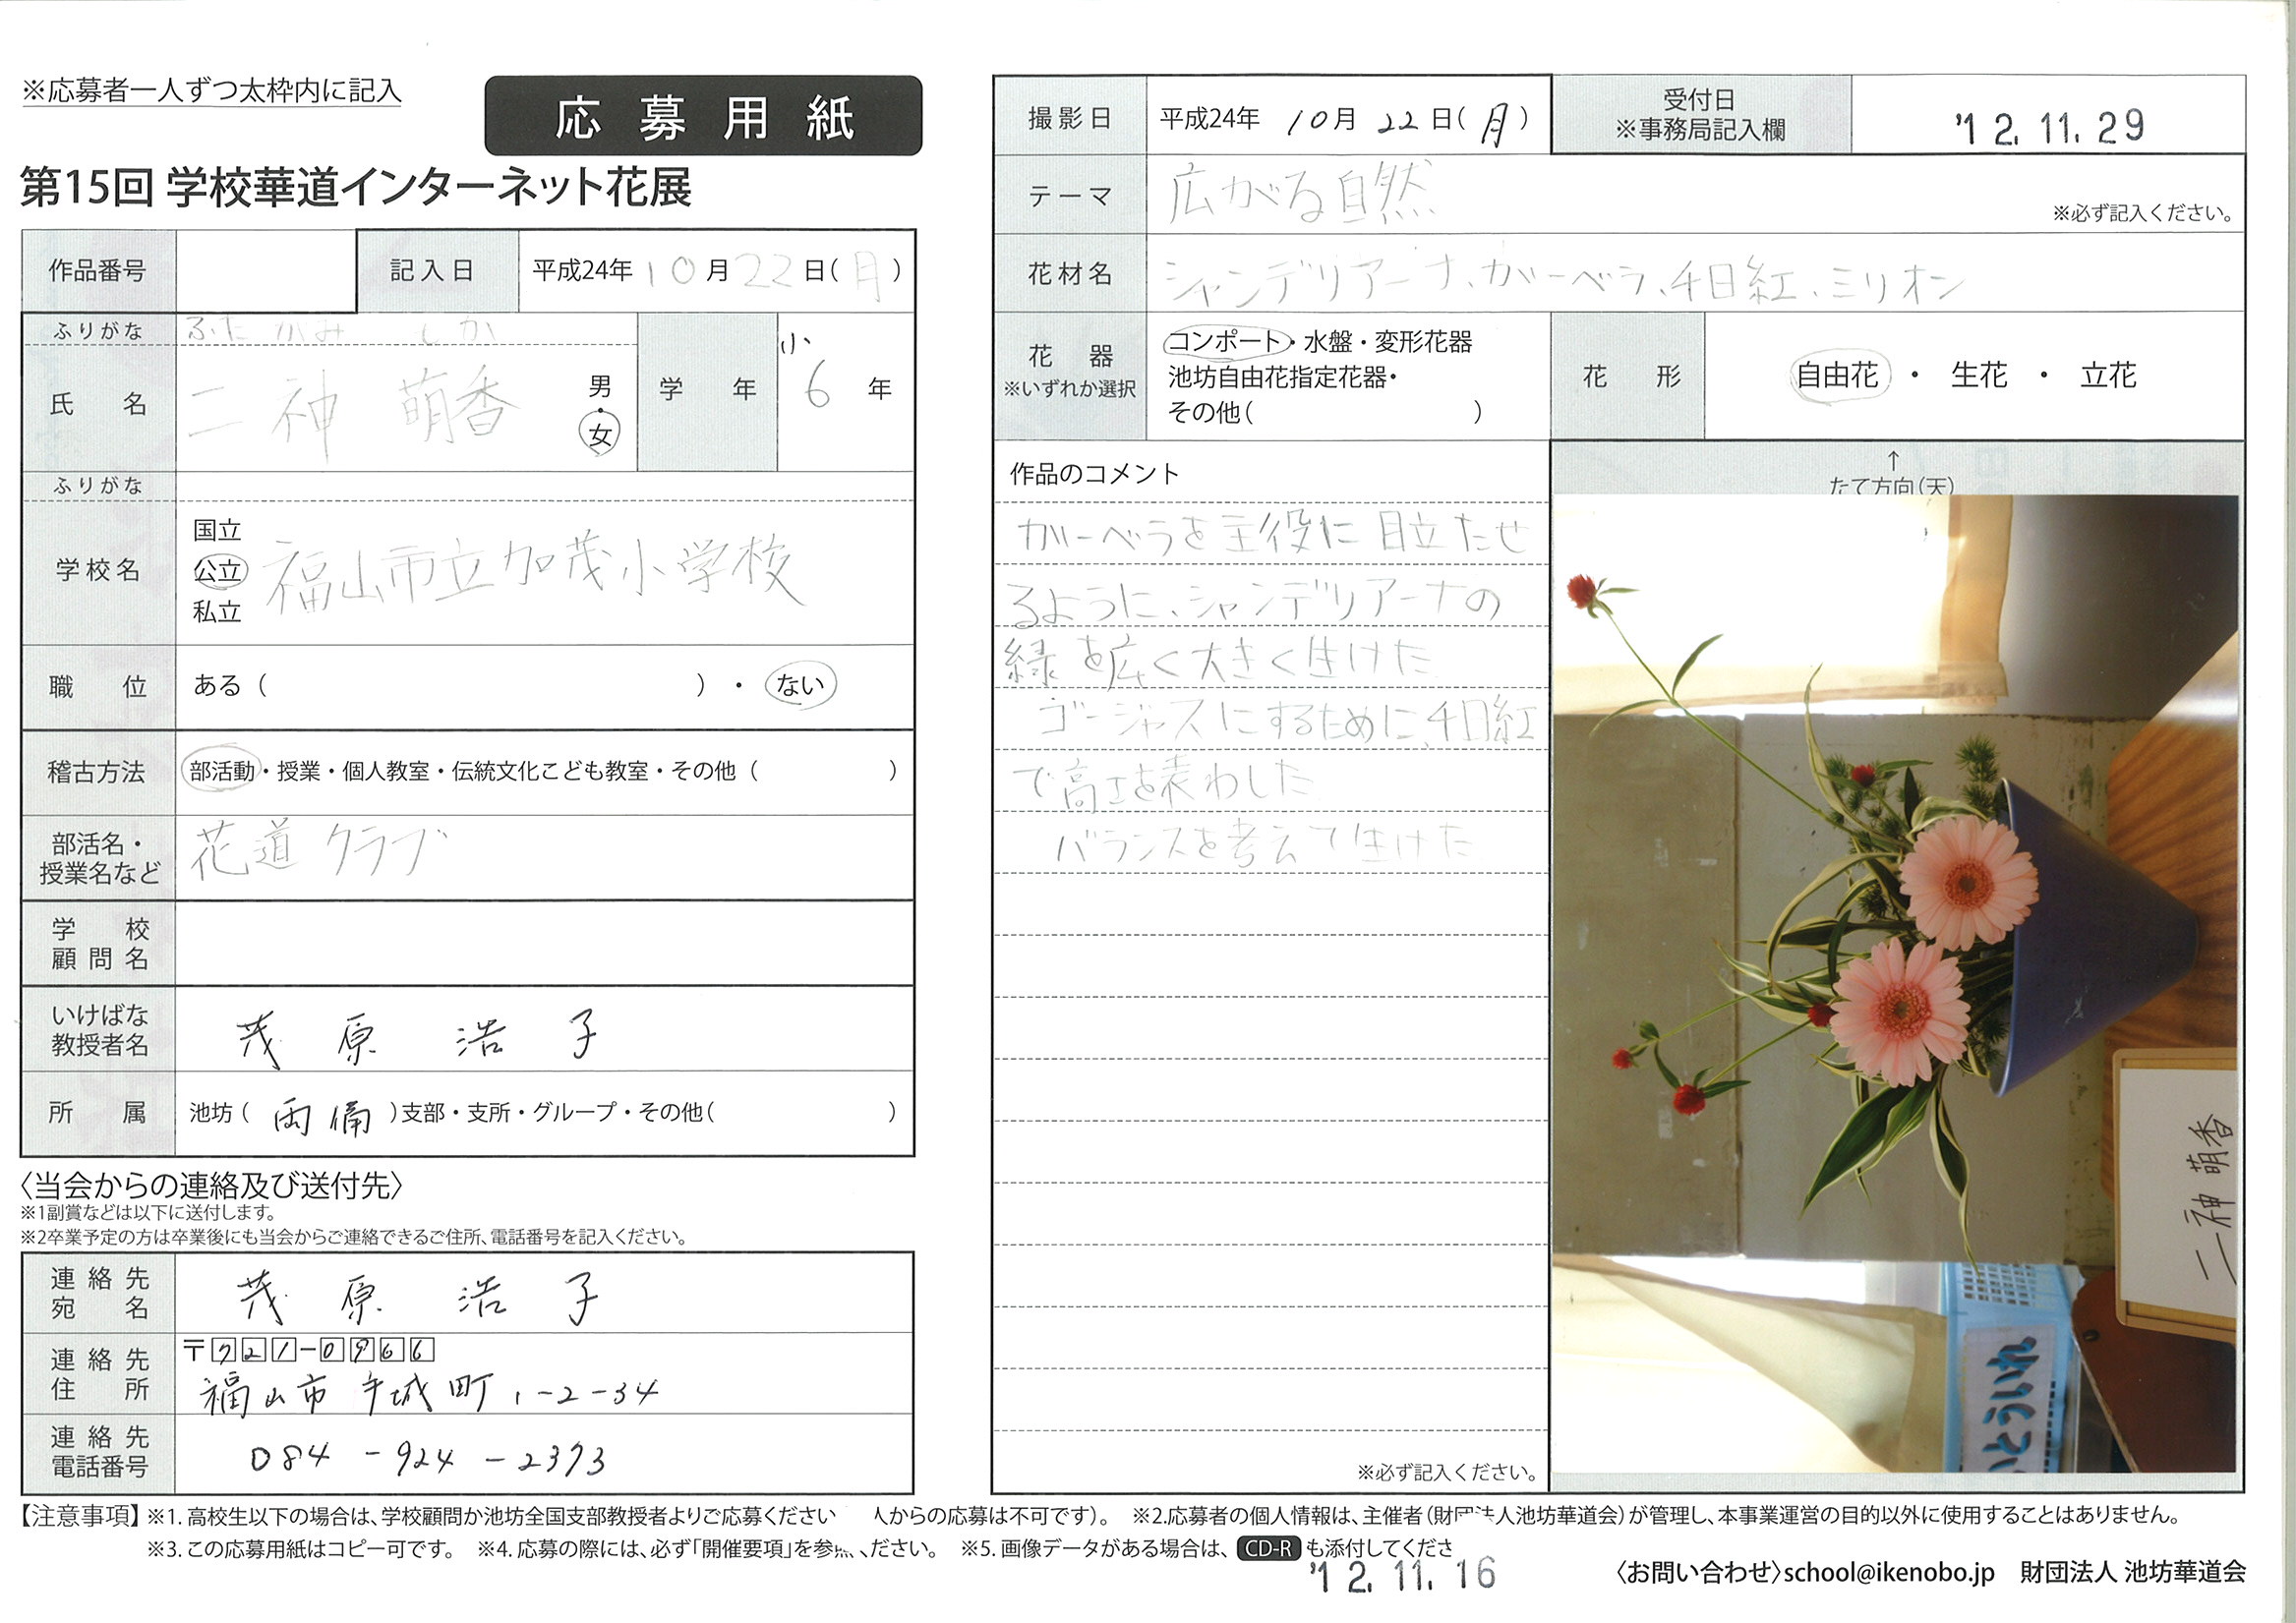 ※応募者一人ずつ太枠内に記入
応募用紙
第15回 学校華道インターネット花展
作品番号
記入日 平成24年10月22日(月)
ふりがな ふたがみ
氏名 二神 萌香 男・女
学年 小6年
ふりがな
学校名 国立 公立 私立 福山市立加茂小学校
職位 ある( )・ない
稽古方法 部活動・授業・個人教室・伝統文化こども教室・その他( )
部活名・授業名など 花道クラブ
学校顧問名
いけばな教授者名 茂原 浩子
所属 池坊(両備)支部・支所・グループ・その他( )
〈当会からの連絡及び送付先〉
※1副賞などは以下に送付します。
※2卒業予定の方は卒業後にも当会からご連絡できるご住所、電話番号を記入ください。
連絡先宛名 茂原 浩子
連絡先住所 〒721-0966
福山市手城町1-2-34
連絡先電話番号 084-924-2373
撮影日 平成24年10月22日(月)
受付日 ※事務局記入欄 '12.11.29
テーマ 広がる自然 ※必ず記入ください。
花材名 シャンデリアーナ、ガーベラ、千日紅、ミリオン
花器 ※いずれか選択
コンポート・水盤・変形花器
池坊自由花指定花器・
その他( )
花形 自由花・生花・立花
作品のコメント
ガーベラを主役に目立たせ
るように、シャンデリアーナの
緑を広く大きく生けた
ゴージャスにするために、千日紅
で高エを表わした
バランスを考えて生けた
※必ず記入ください。
↑
たて方向(天)
二神 萌香
とういれ
【注意事項】※1. 高校生以下の場合は、学校顧問か池坊全国支部教授者よりご応募ください 人からの応募は不可です)。 ※2.応募者の個人情報は、主催者(財団法人池坊華道会)が管理し、本事業運営の目的以外に使用することはありません。
※3. この応募用紙はコピー可です。 ※4. 応募の際には、必ず「開催要項」を参 ください。 ※5. 画像データがある場合は、CD-Rも添付してくださ
'12.11.16
〈お問い合わせ〉school@ikenobo.jp 財団法人 池坊華道会